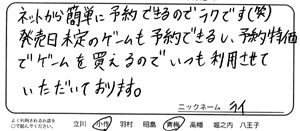 ネットから簡単に予約できるのでラクです(笑)
発売日未定のゲームも予約できるし、予約特価
でゲームを買えるのでいつも利用させて
いただいております。
ニックネーム ライ
よく利用されるお店を
○で囲んでください。
立川 小作 羽村 昭島 青梅 高幡 堀之内 八王子